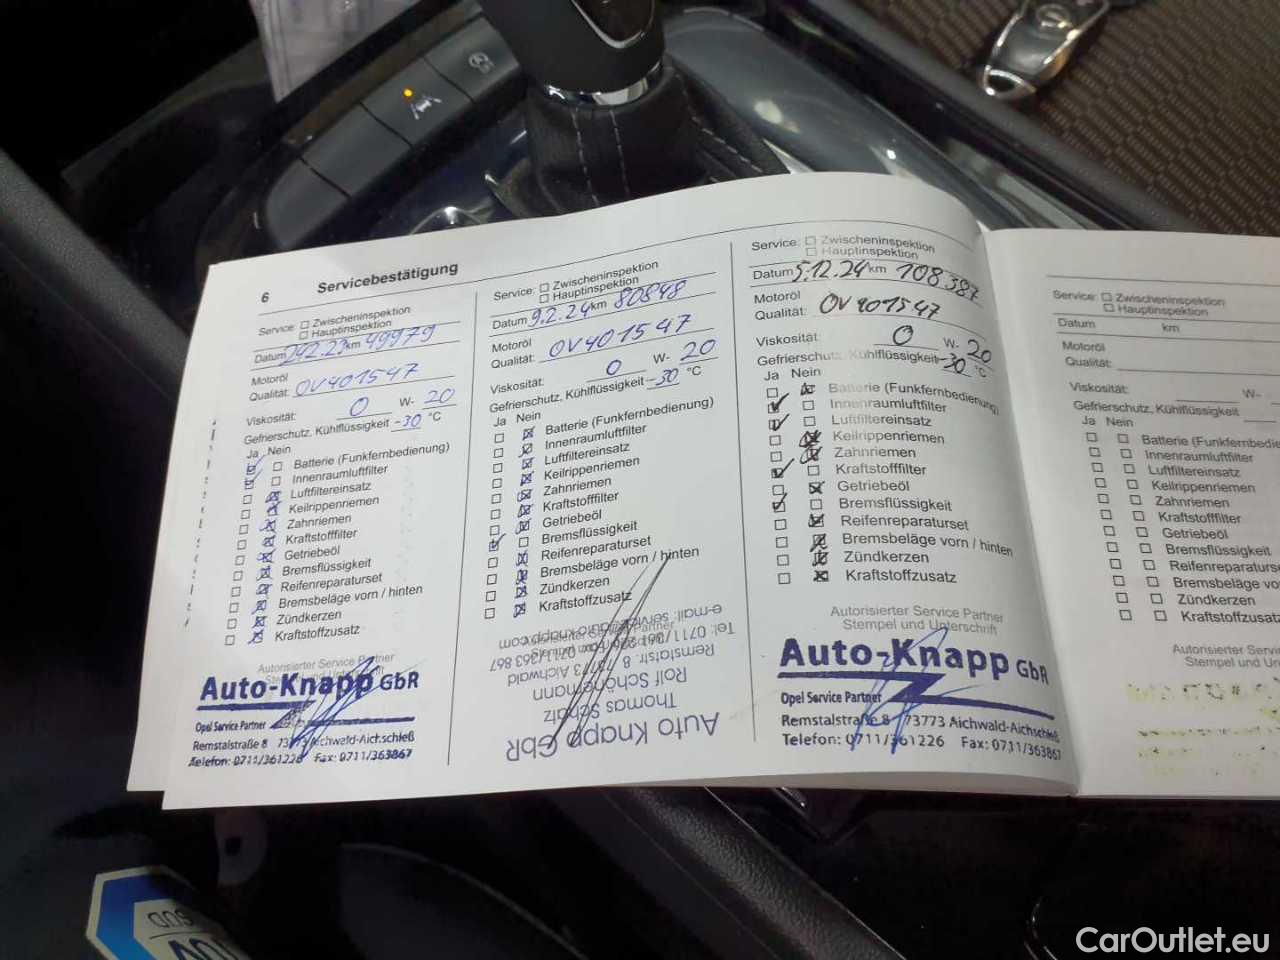 6 Servicebestätigung
Service: Zwischeninspektion
Hauptinspektion
Datum 242.23 km 49979
Motoröl
Qualität: OV401547
Viskosität: 0 W- 20
Gefrierschutz, Kühlflüssigkeit -30 °C
Ja Nein
Batterie (Funkfernbedienung)
Innenraumluftfilter
Luftfiltereinsatz
Keilrippenriemen
Zahnriemen
Kraftstofffilter
Getriebeöl
Bremsflüssigkeit
Reifenreparaturset
Bremsbeläge vorn / hinten
Zündkerzen
Kraftstoffzusatz
Autorisierter Service Partner
Auto-Knapp GbR
Opel Service Partner
Remstalstraße 8 73773 Aichwald-Aichschieß
Telefon: 0711/361226 Fax: 0711/363867
Service: Zwischeninspektion
Hauptinspektion
Datum 9.2.24 km 80848
Motoröl
Qualität: OV401547
Viskosität: 0 W- 20
Gefrierschutz, Kühlflüssigkeit -30 °C
Ja Nein
Batterie (Funkfernbedienung)
Innenraumluftfilter
Luftfiltereinsatz
Keilrippenriemen
Zahnriemen
Kraftstofffilter
Getriebeöl
Bremsflüssigkeit
Reifenreparaturset
Bremsbeläge vorn / hinten
Zündkerzen
Kraftstoffzusatz
Autorisierter Service Partner
Auto Knapp GbR
Thomas Schatz
Rolf Schönemann
Remstalstr. 8 73773 Aichwald
Tel: 0711/361226 0711/363867
Service: Zwischeninspektion
Hauptinspektion
Datum 5.12.24 km 108387
Motoröl
Qualität: OV401547
Viskosität: 0 W- 20
Gefrierschutz, Kühlflüssigkeit -30 °C
Ja Nein
Batterie (Funkfernbedienung)
Innenraumluftfilter
Luftfiltereinsatz
Keilrippenriemen
Zahnriemen
Kraftstofffilter
Getriebeöl
Bremsflüssigkeit
Reifenreparaturset
Bremsbeläge vorn / hinten
Zündkerzen
Kraftstoffzusatz
Autorisierter Service Partner
Stempel und Unterschrift
Auto-Knapp GbR
Opel Service Partner
Remstalstraße 8 73773 Aichwald-Aichschieß
Telefon: 0711/361226 Fax: 0711/363867
Service: Zwischeninspektion
Hauptinspektion
Datum km
Motoröl
Qualität:
Viskosität: W-
Gefrierschutz, Kühlflüssigkeit
Ja Nein
Batterie (Funkfernbedie
Innenraumluftfilter
Luftfiltereinsatz
Keilrippenriemen
Zahnriemen
Kraftstofffilter
Getriebeöl
Bremsflüssigkeit
Reifenrepara
Bremsbeläge vo
Zündkerzen
Kraftstoffzusat
Autorisierter Servic
Stempel und Unters
CarOutlet.eu